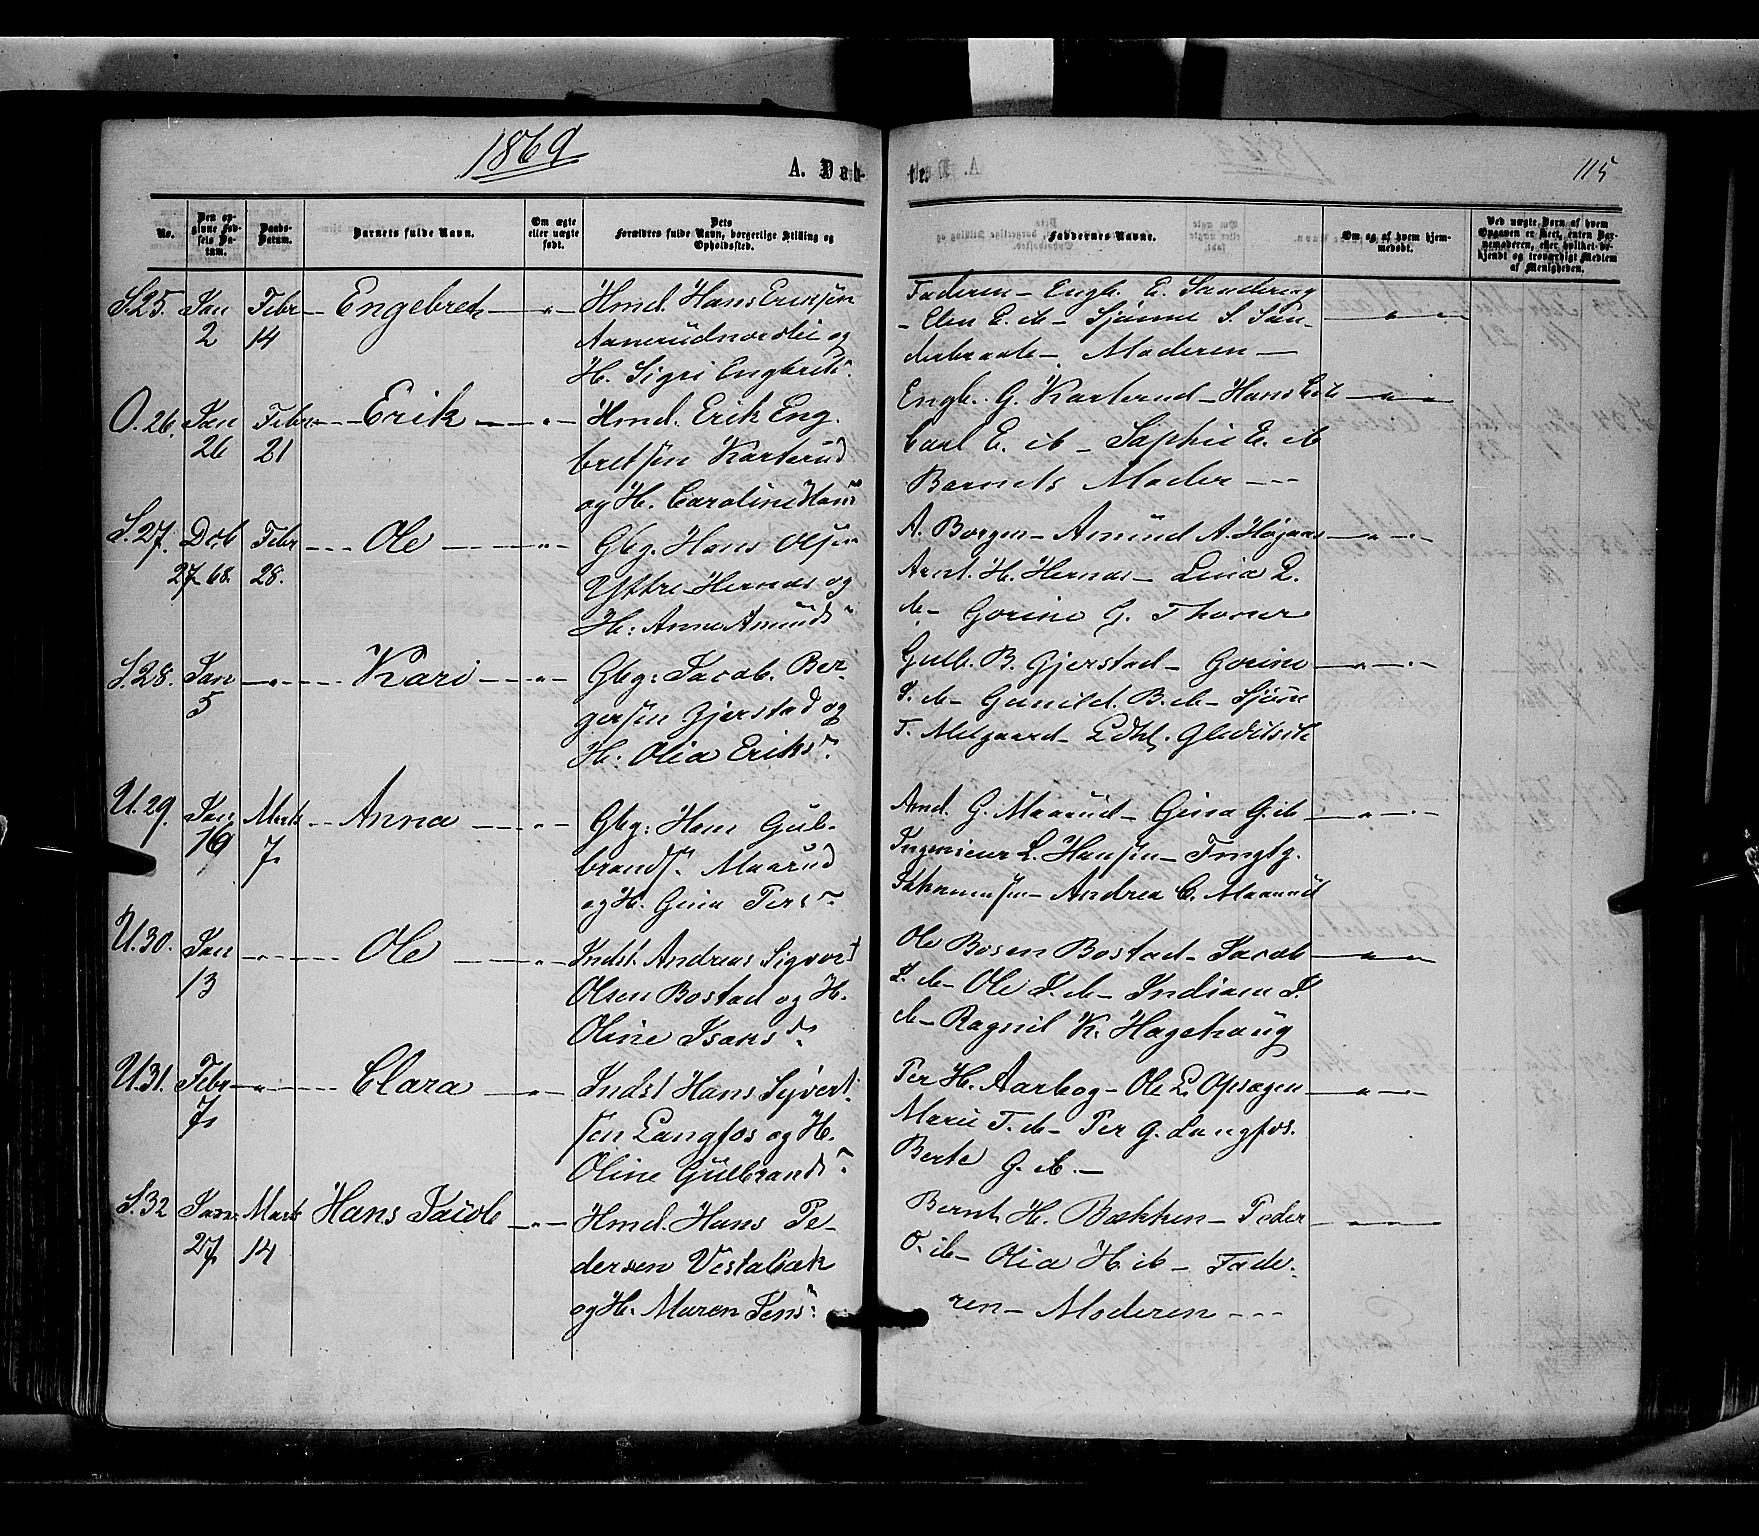 1869
A. Døb-
te.
115
No.
Den opgivne Fødsels Datum.
Daabs-Datum.
Barnets fulde Navn.
Om ægte eller uægte født.
Dets Forældres fulde Navn, borgerlige Stilling og Opholdssted.
Faddernes Navne.
Om og af hvem hjemmedøbt.
Ved uægte Børn af hvem Opgaven er skeet, enten Barnemoderen, eller hvilket bekjendt og troværdigt Medlem af Menigheden.
S. 25. Jan 2 Febr 14 Engebret
Hmd. Hans Eriksen
Aamerudnordlie og
H. Sigri Engbrets.
Faderen - Engb. E. Sandereng
- Elen E. ib - Sjønne S. San-
derbraate - Moderen -
O. 26. Jan 26 Febr 21 Erik
Hmd. Erik Eng-
bretsen Karterud
og H. Caroline Hans
Engb. G. Karterud - Hans E. ib
Carl E. ib - Sophie E. ib
Barnets Moder ---
S. 27. Dcb 27 68. Febr 28. Ole
Gbg. Hans Olsen
Yttre-Hernæs og
H: Anne Amunds
A. Borgen - Amund A. Højaas
Arnt. H. Hernæs - Lina L.
ib - Gorine G. Thorer
S. 28. Jan 5 Kari
Gbg: Jacob. Ber-
gersen Gjerstad og
H: Olia Eriks
Gulb. B. Gjerstad - Gorine
ib - Gunild. B. ib - Sjønn
T. Melgaard -
U. 29. Jan 16 Marts 7 Anna
Gbg: Hans Gul-
brands. Maarud
og H. Gina Pers
Amd. G. Maarud - Gina G. ib
Ingenieur L. Hansen -
Andrea C. Maarud
U. 30. Jan 13 Ole
Indst. Andreas Sigvart
Olsen Bostad og H.
Oline Isaks d.
Ole Bosen Bostad - Jacob
I. ib - Ole I. ib - Indiane I.
ib - Ragnil K. Hagehaug
U. 31. Febr 7 Clara
Indst Hans Syvert-
sen Langfos og H.
Oline Gulbrands
Per H. Aarbog - Ole L. Opsagen
Marie T. ib - Per G. Langfos.
Berte G. ib. -
S. 32 Jan. 27 Marts 14 Hans Jacob
Hmd. Hans Pe-
dersen Vestabæk
og H. Maren Jens
Bernt H. Bækken - Peder
O. ib - Olia H. ib - Fade-
ren - Moderen ---